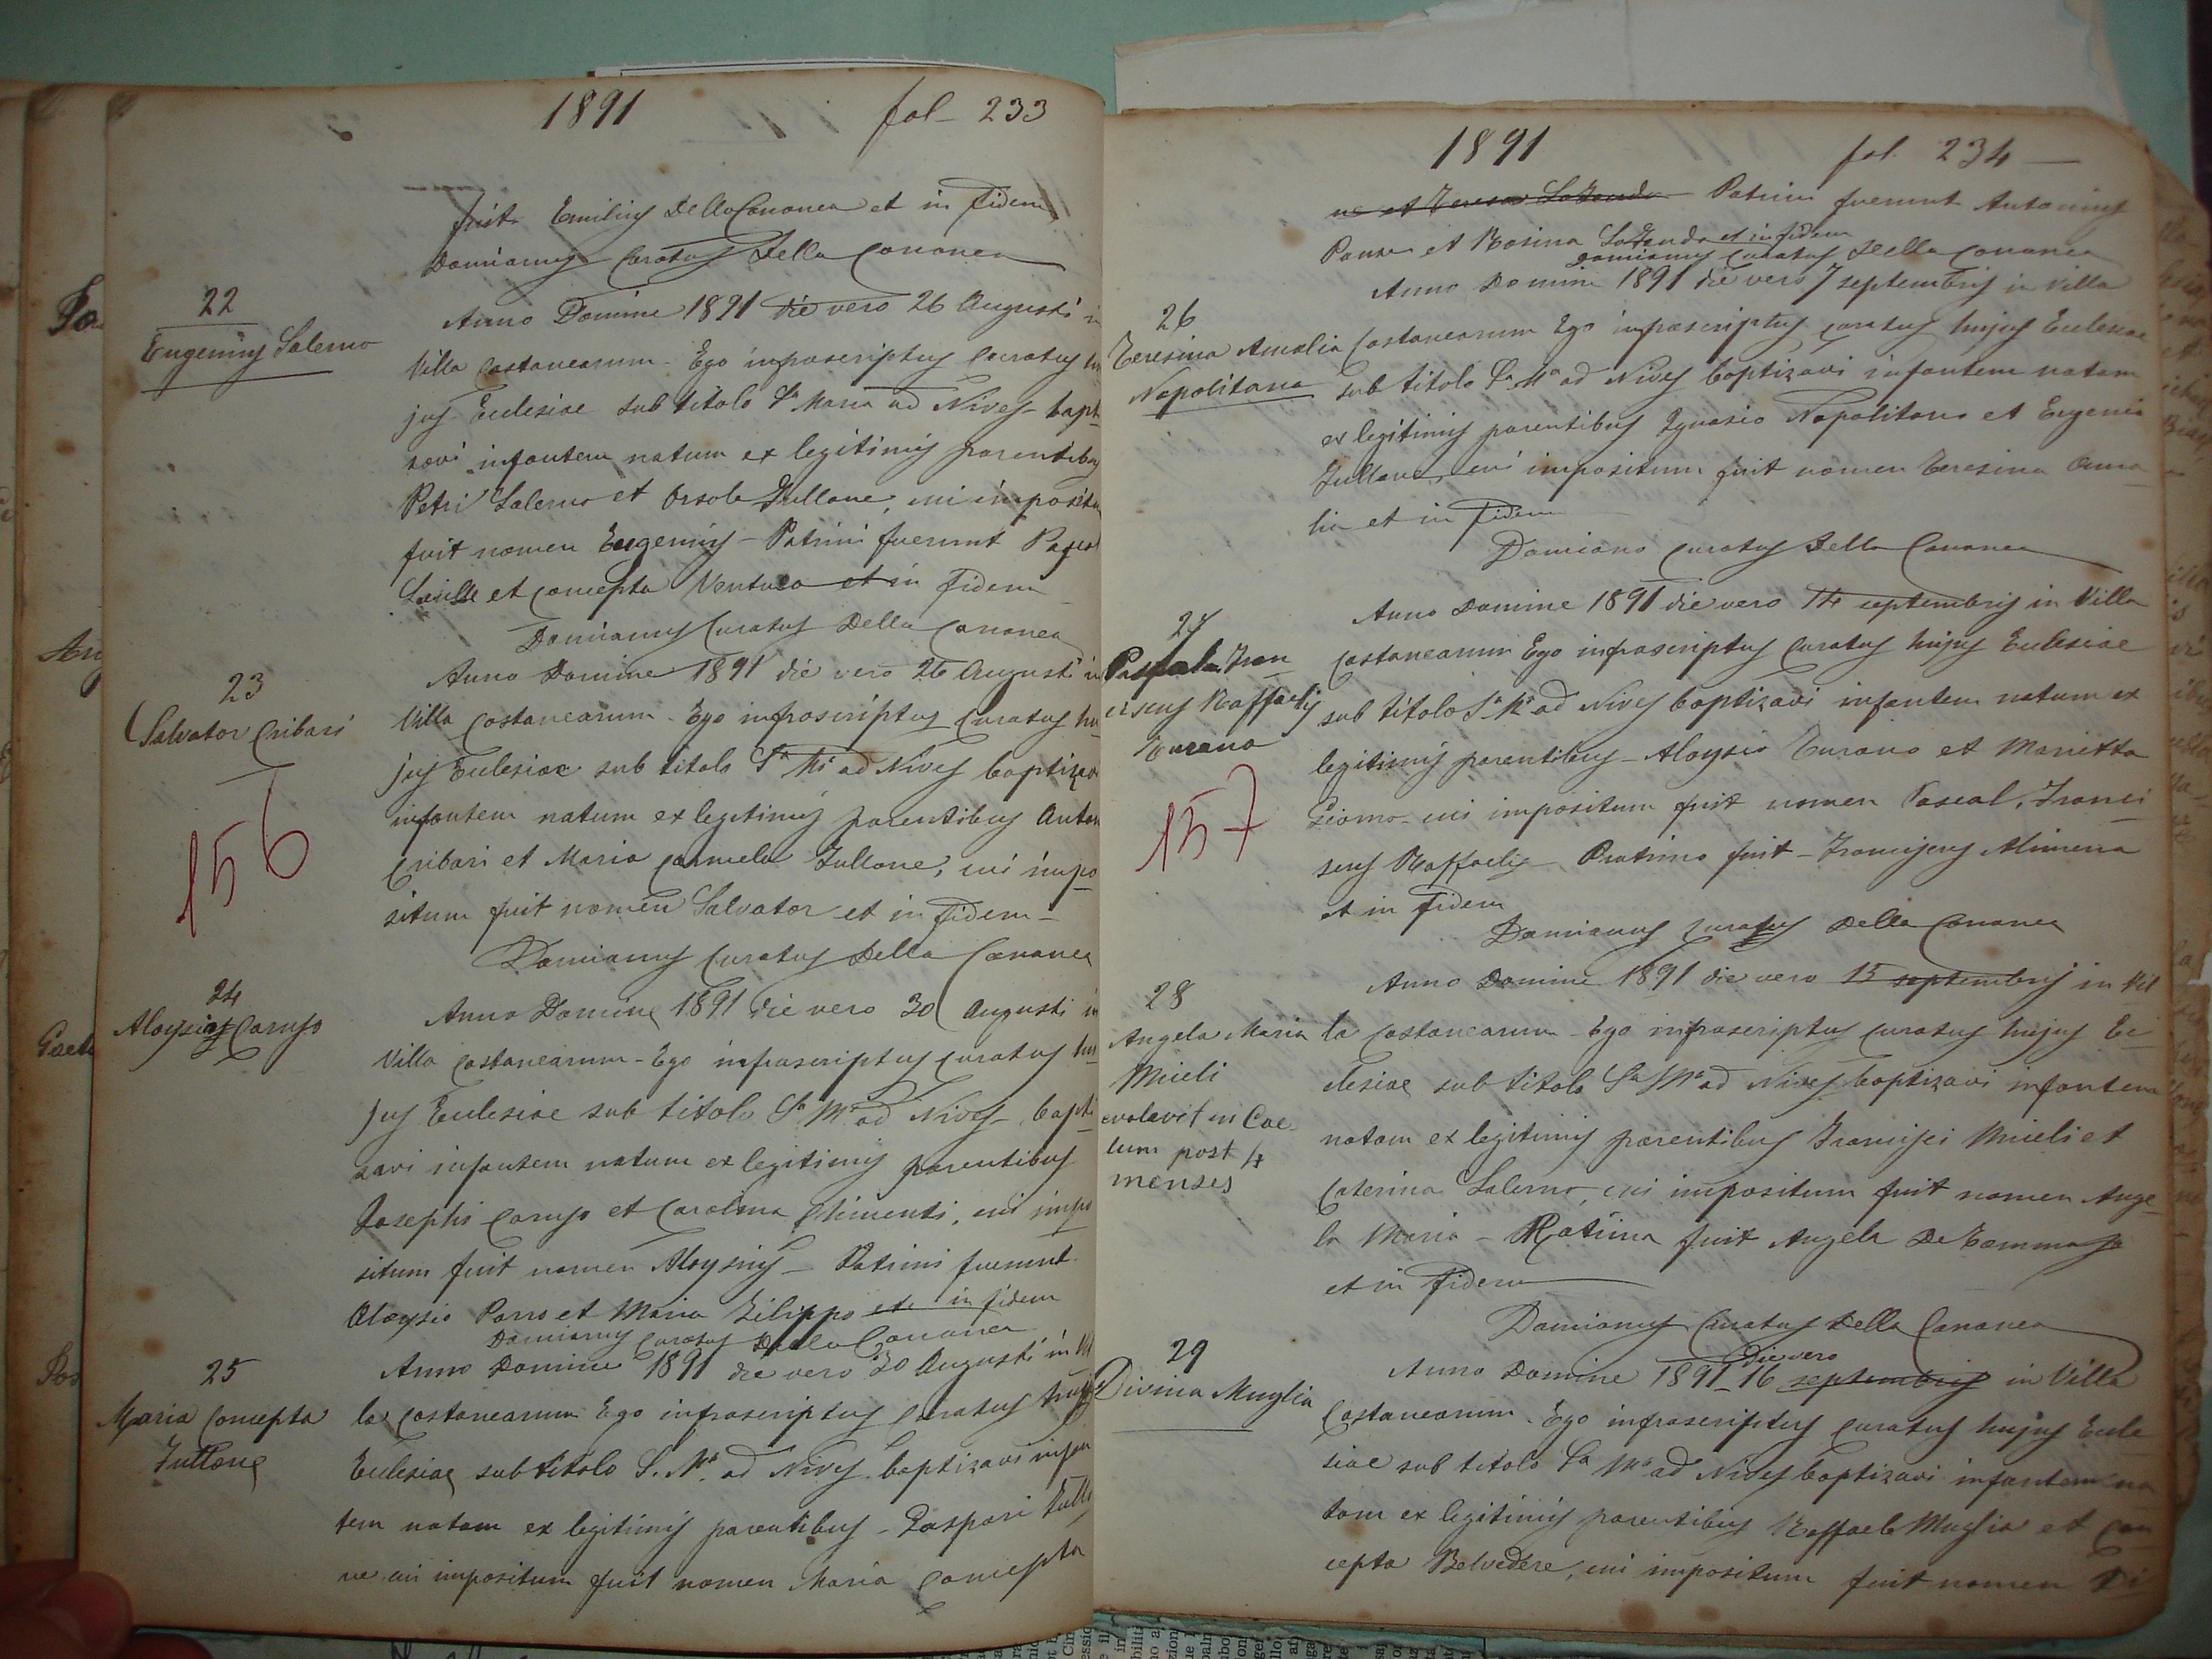 1891 fol- 233
fuit Emilius Della Cananea et in Fidem
Damianus Curatus Della Cananea
22
Eugenius Salerno
Anno Domine 1891 die vero 26 Augusti in
Villa Castanearum - Ego infrascriptus Curatus hu
jus Ecclesiae sub titolo Sa Maria ad Nives - bapti
zavi infantem natum ex legitimis parentibus
Petri Salerno et Orsola Tullone, cui impositu
fuit nomen Eugenius - Patrini fuerunt
et Concepta Ventura et in Fidem
Damianus Curatus Della Cananea
23
Salvator Cribari
156
Anno Domine 1891 die vero 26 Augusti in
Villa Castanearum - Ego infrascriptus Curatus hu
jus Ecclesiae sub titolo Sa Ma ad Nives baptizavi
infantem natum ex legitimis parentibus Anton
Cribari et Maria Carmela Tullone, cui impo
situm fuit nomen Salvator et in Fidem -
Damianus Curatus Della Cananea
24
Aloysius Caruso
Anno Domine 1891 die vero 30 Augusti in
Villa Castanearum - Ego infrascriptus Curatus hu
jus Ecclesiae sub titolo Sa Ma ad Nives - bapti
zavi infantem natum ex legitimis parentibus
Josephi Caruso et Carolina Chimenti, cui impo
situm fuit nomen Aloysius - Patrini fuerunt
Aloysio Parro et Maria Filippo et in fidem
Damianus Curatus Della Cananea
25
Maria Concepta
Tullone
Anno Domine 1891 die vero 30 Augusti in Vil
la Castanearum Ego infrascriptus Curatus hujus
Ecclesiae sub titolo S. Ma ad Nives baptizavi infan
tem natam ex legitimis parentibus - Gaspari Tullo
ne cui impositum fuit nomen Maria Concepta
1891 fol. 234 -
ne et Teresa Patrini fuerunt Antonius
et Rosina et in fidem
Damianus Curatus Della Cananea
26
Teresina Amalia
Napolitano
Anno Domine 1891 die vero 7 septembris in Villa
Castanearum Ego infrascriptus Curatus hujus Ecclesiae
sub titolo Sa Ma ad Nives baptizavi infantem natam
ex legitimis parentibus Ignasio Napolitano et Eugenia
Tullone, cui impositum fuit nomen Teresina Ama
lia et in Fidem
Damiano Curatus Della Cananea
27
Pascale Fran
ciscus Raffaelis
Turano
157
Anno Domine 1891 die vero 14 septembris in Villa
Castanearum Ego infrascriptus Curatus hujus Ecclesiae
sub titolo Sa Ma ad Nives baptizavi infantem natum ex
legitimis parentibus - Aloysio Turano et Marietta
Giorno - cui impositum fuit nomen Pascal, Franci
scus Raffaelis - Pratimo fuit - Franciscus Alimena
et in Fidem
Damianus Curatus Della Cananea
28
Angela Maria
Mieli
evolavit in Cae
lum post 4
menses
Anno Domine 1891 die vero 15 septembris in Vil
la Castanearum - Ego infrascriptus Curatus hujus Ec
clesiae sub titolo Sa Ma ad Nives baptizavi infantem
natam ex legitimis parentibus Francisci Mieli et
Caterina Salerno, cui impositum fuit nomen Ange
la Maria - Matrina fuit Angela De Tommaso
et in Fidem
Damianus Curatus Della Cananea
29
Divina Muglia
Anno Domine 1891 - die vero 16 septembris in Villa
Castanearum - Ego infrascriptus Curatus hujus Eccle
siae sub titolo Sa Ma ad Nives baptizavi infantem na
tam ex legitimis parentibus Raffaele Muglia et Con
cepta Belvedere, cui impositum fuit nomen Di